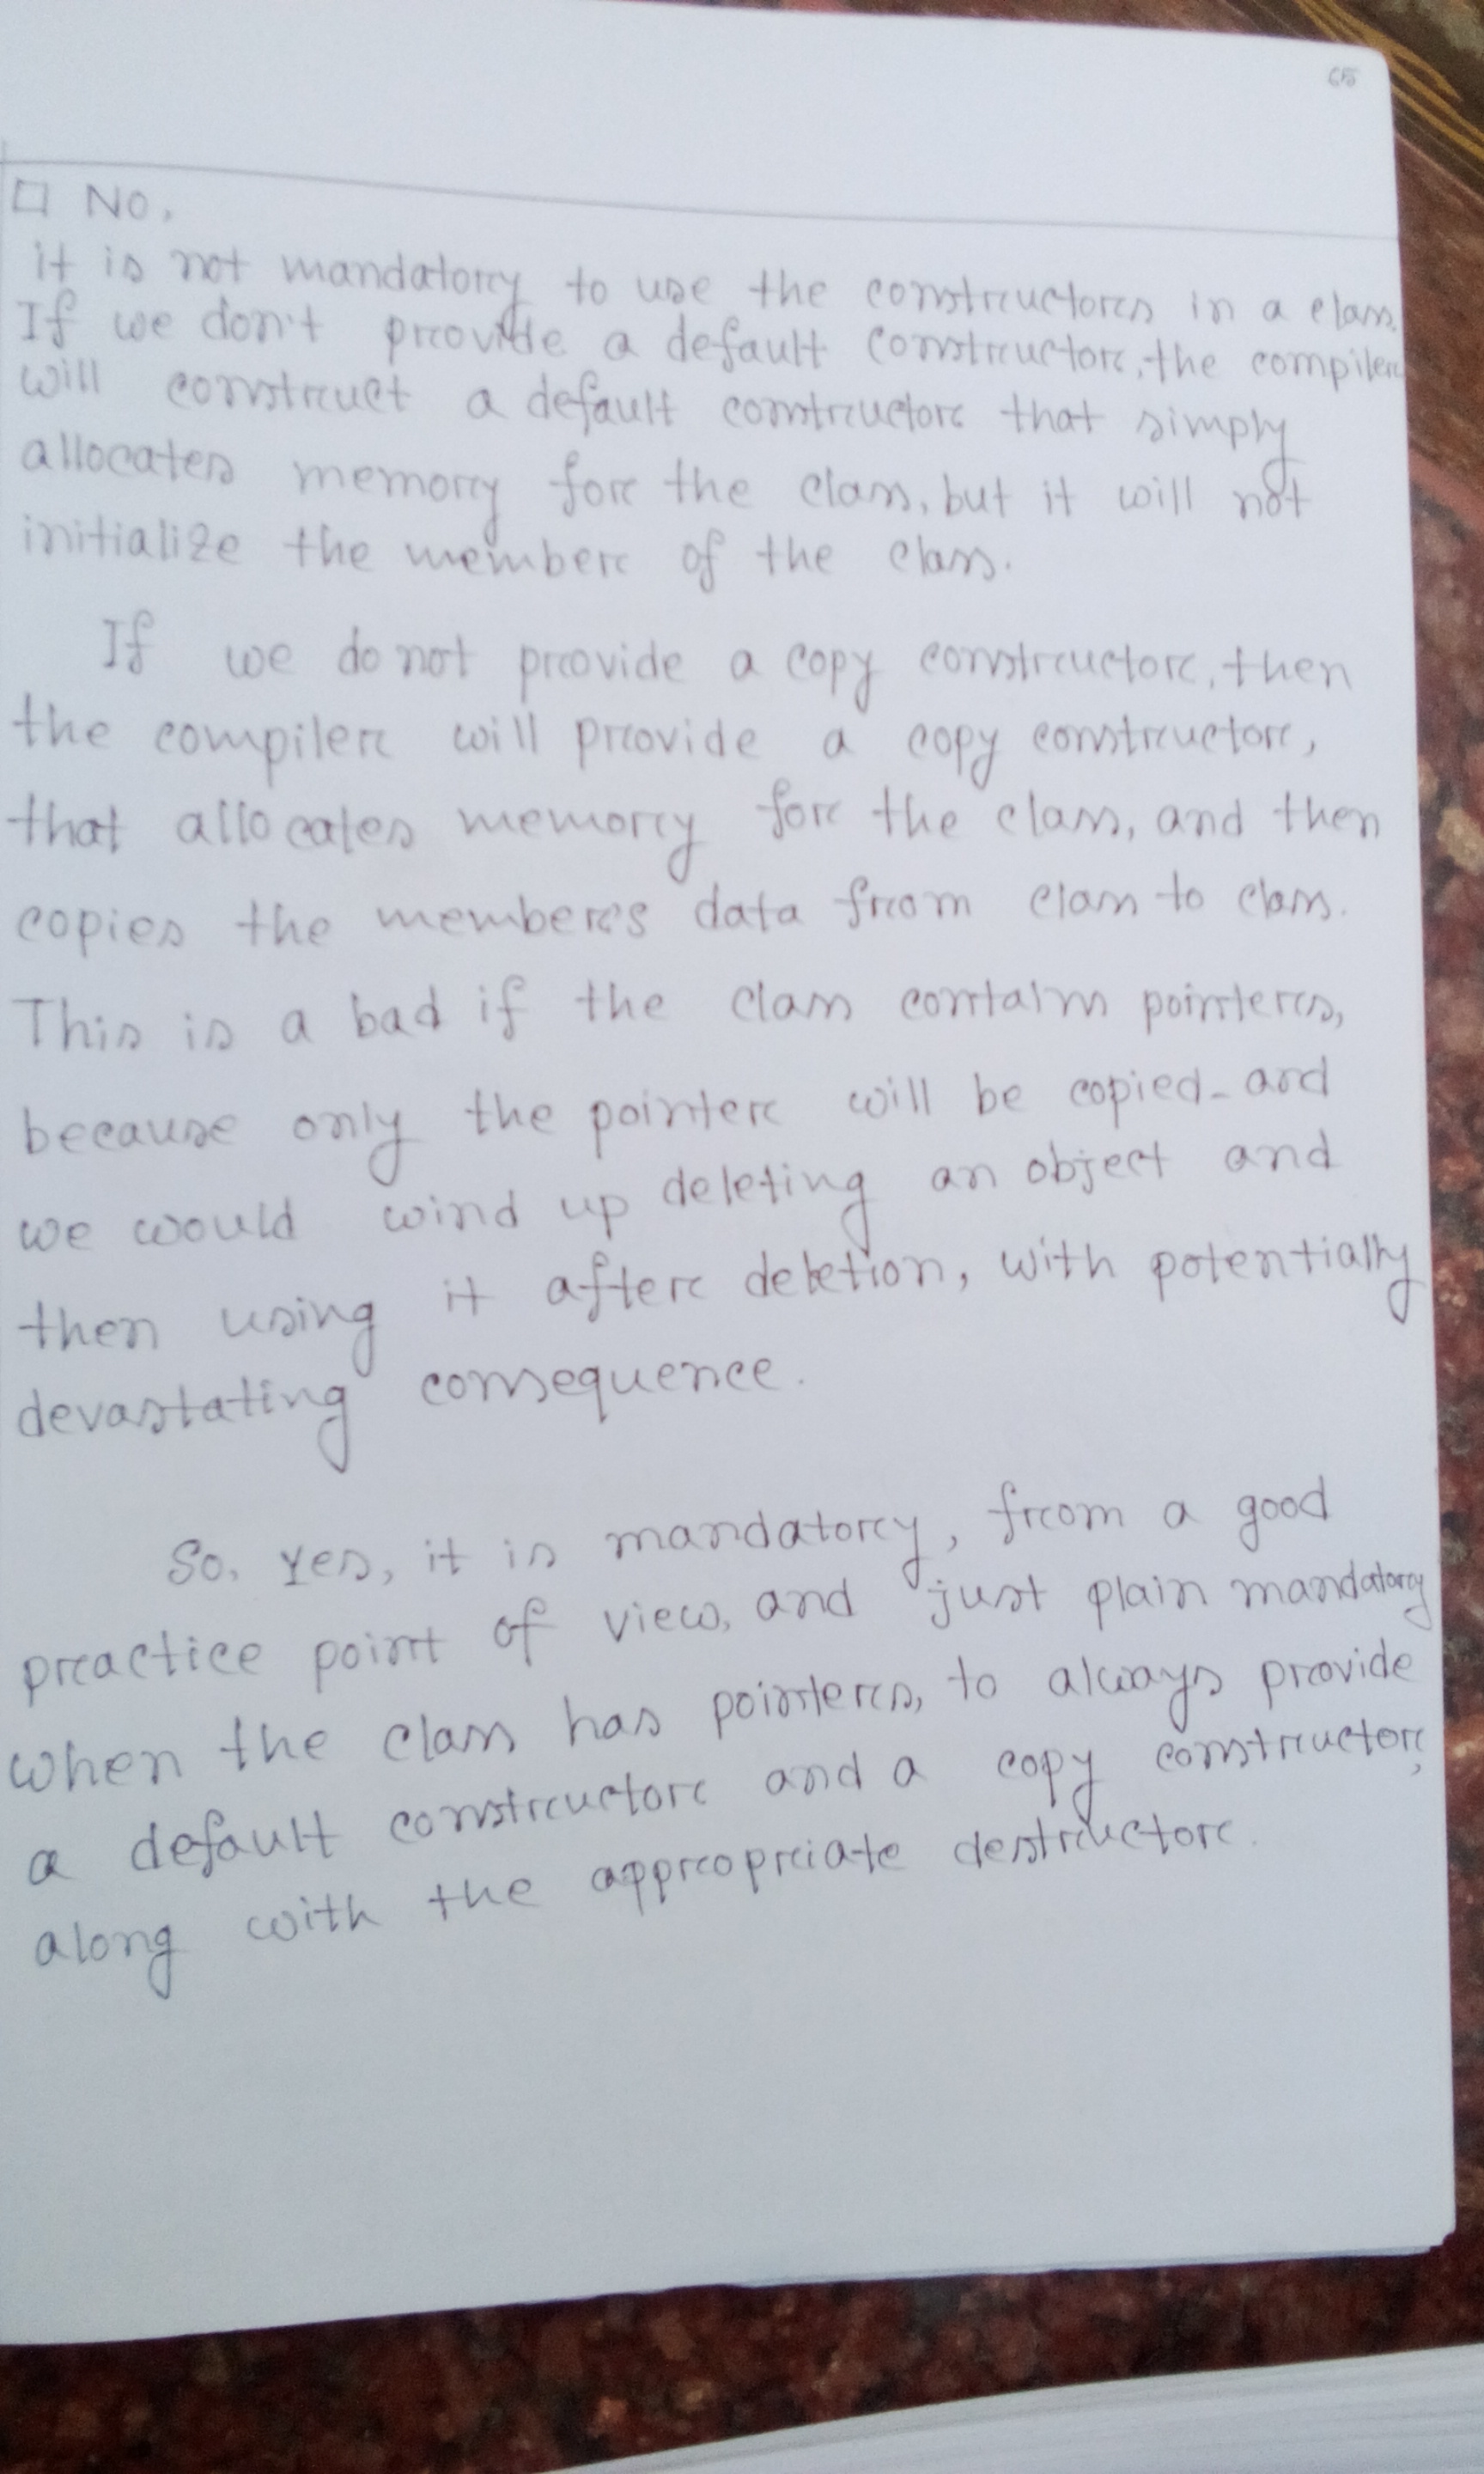 65
□ No,
it is not mandatory to use the constructors in a class.
If we don't provide a default constructor, the compiler
will construct a default constructor that simply
allocates memory for the class, but it will not
initialize the member of the class.
If we do not provide a copy constructor, then
the compiler will provide a copy constructor,
that allocates memory for the class, and then
copies the member's data from class to class.
This is a bad if the class contains pointers,
because only the pointer will be copied - and
we would wind up deleting an object and
then using it after deletion, with potentially
devastating consequence.
So, yes, it is mandatory, from a good
practice point of view, and just plain mandatory
when the class has pointers, to always provide
a default constructor and a copy constructor,
along with the appropriate destructor.